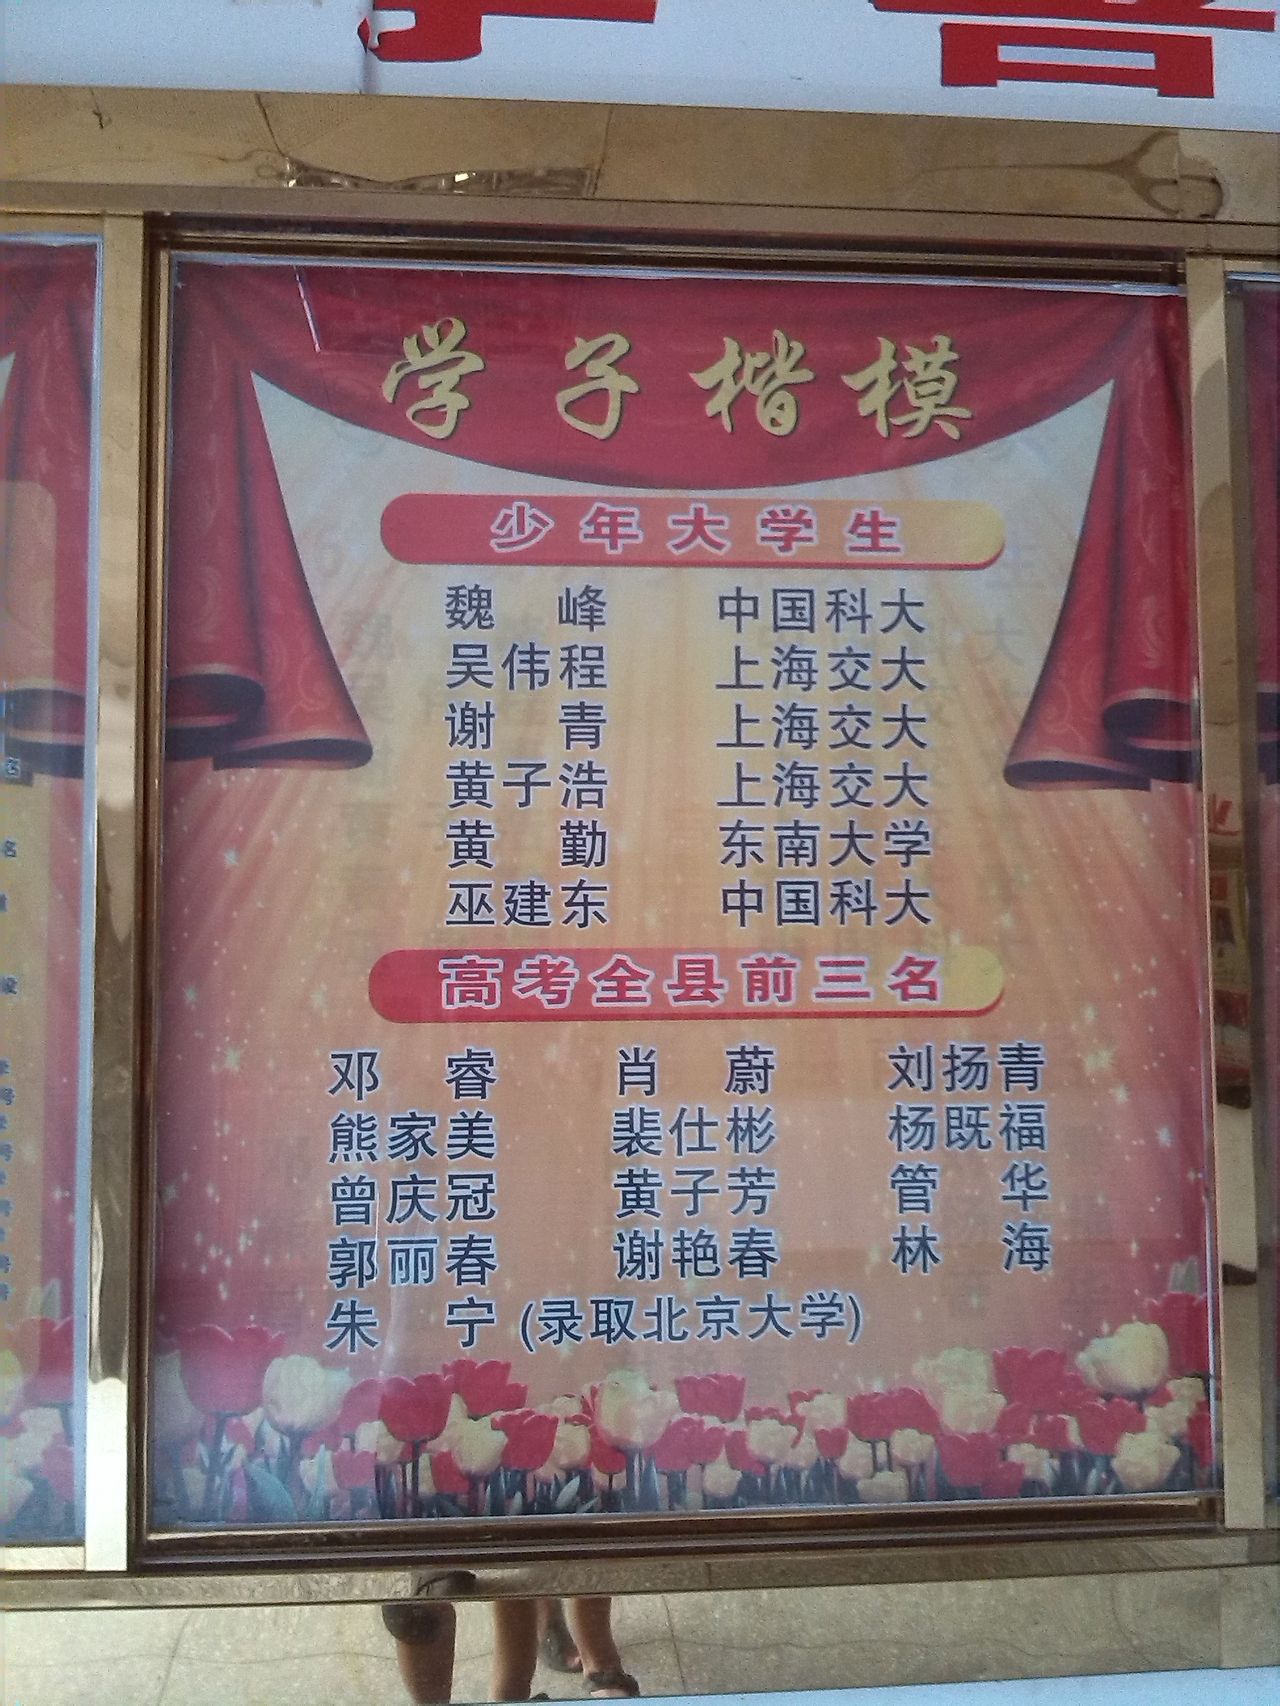 学子楷模
少年大学生
魏峰 中国科大
吴伟程 上海交大
谢青 上海交大
黄子浩 上海交大
黄勤 东南大学
巫建东 中国科大
高考全县前三名
邓睿 肖蔚 刘扬青
熊家美 裴仕彬 杨既福
曾庆冠 黄子芳 管华
郭丽春 谢艳春 林海
朱宁 (录取北京大学)